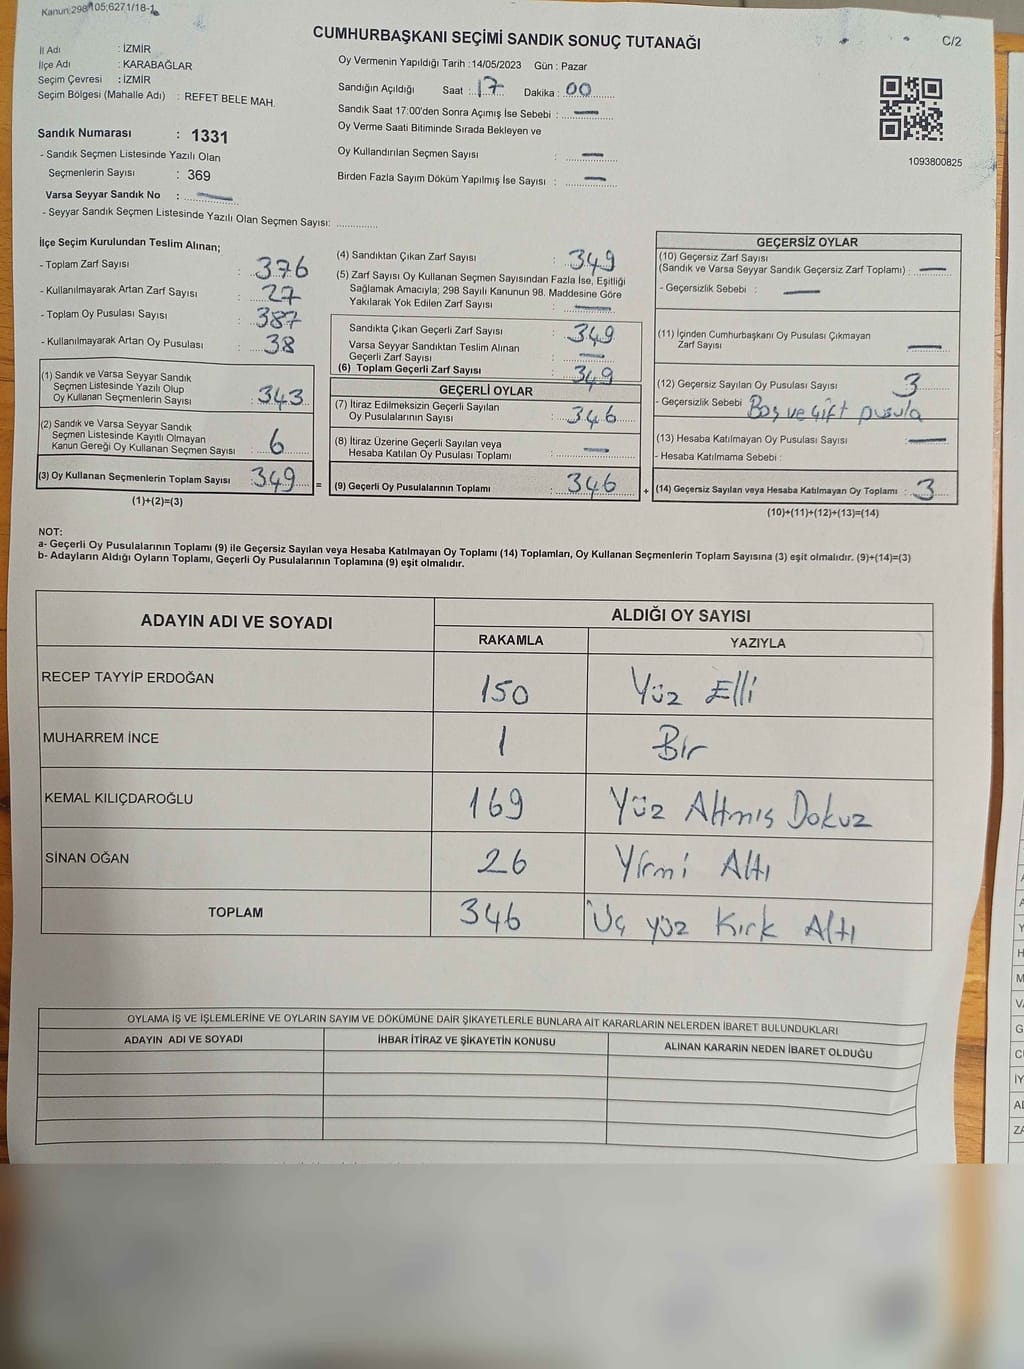 Kanun:298 105;6271/18-1
C/2
CUMHURBAŞKANI SEÇİMİ SANDIK SONUÇ TUTANAĞI
İl Adı : İZMİR
İlçe Adı : KARABAĞLAR
Seçim Çevresi : İZMİR
Seçim Bölgesi (Mahalle Adı) : REFET BELE MAH.
Sandık Numarası : 1331
- Sandık Seçmen Listesinde Yazılı Olan
Seçmenlerin Sayısı : 369
Varsa Seyyar Sandık No : —
- Seyyar Sandık Seçmen Listesinde Yazılı Olan Seçmen Sayısı: ..............
Oy Vermenin Yapıldığı Tarih :14/05/2023 Gün : Pazar
Sandığın Açıldığı Saat : 17 Dakika : 00
Sandık Saat 17:00'den Sonra Açımış İse Sebebi : —
Oy Verme Saati Bitiminde Sırada Bekleyen ve
Oy Kullandırılan Seçmen Sayısı : —
Birden Fazla Sayım Döküm Yapılmış İse Sayısı : —
1093800825
İlçe Seçim Kurulundan Teslim Alınan;
- Toplam Zarf Sayısı : 376
- Kullanılmayarak Artan Zarf Sayısı : 27
- Toplam Oy Pusulası Sayısı : 387
- Kullanılmayarak Artan Oy Pusulası : 38
(1) Sandık ve Varsa Seyyar Sandık
Seçmen Listesinde Yazılı Olup
Oy Kullanan Seçmenlerin Sayısı : 343
(2) Sandık ve Varsa Seyyar Sandık
Seçmen Listesinde Kayıtlı Olmayan
Kanun Gereği Oy Kullanan Seçmen Sayısı : 6
(3) Oy Kullanan Seçmenlerin Toplam Sayısı : 349 =
(1)+(2)=(3)
(4) Sandıktan Çıkan Zarf Sayısı : 349
(5) Zarf Sayısı Oy Kullanan Seçmen Sayısından Fazla İse, Eşitliği
Sağlamak Amacıyla; 298 Sayılı Kanunun 98. Maddesine Göre
Yakılarak Yok Edilen Zarf Sayısı : —
Sandıkta Çıkan Geçerli Zarf Sayısı : 349
Varsa Seyyar Sandıktan Teslim Alınan
Geçerli Zarf Sayısı : —
(6) Toplam Geçerli Zarf Sayısı : 349
GEÇERLİ OYLAR
(7) İtiraz Edilmeksizin Geçerli Sayılan
Oy Pusulalarının Sayısı : 346
(8) İtiraz Üzerine Geçerli Sayılan veya
Hesaba Katılan Oy Pusulası Toplamı : —
(9) Geçerli Oy Pusulalarının Toplamı : 346 +
GEÇERSİZ OYLAR
(10) Geçersiz Zarf Sayısı
(Sandık ve Varsa Seyyar Sandık Geçersiz Zarf Toplamı) : —
- Geçersizlik Sebebi : —
(11) İçinden Cumhurbaşkanı Oy Pusulası Çıkmayan
Zarf Sayısı : —
(12) Geçersiz Sayılan Oy Pusulası Sayısı : 3
- Geçersizlik Sebebi : Boş ve Çift pusula
(13) Hesaba Katılmayan Oy Pusulası Sayısı : —
- Hesaba Katılmama Sebebi :
(14) Geçersiz Sayılan veya Hesaba Katılmayan Oy Toplamı : 3
(10)+(11)+(12)+(13)=(14)
NOT:
a- Geçerli Oy Pusulalarının Toplamı (9) ile Geçersiz Sayılan veya Hesaba Katılmayan Oy Toplamı (14) Toplamları, Oy Kullanan Seçmenlerin Toplam Sayısına (3) eşit olmalıdır. (9)+(14)=(3)
b- Adayların Aldığı Oyların Toplamı, Geçerli Oy Pusulalarının Toplamına (9) eşit olmalıdır.
ADAYIN ADI VE SOYADI ALDIĞI OY SAYISI
RAKAMLA YAZIYLA
RECEP TAYYİP ERDOĞAN 150 Yüz Elli
MUHARREM İNCE 1 Bir
KEMAL KILIÇDAROĞLU 169 Yüz Altmış Dokuz
SİNAN OĞAN 26 Yirmi Altı
TOPLAM 346 Üç yüz Kırk Altı
OYLAMA İŞ VE İŞLEMLERİNE VE OYLARIN SAYIM VE DÖKÜMÜNE DAİR ŞİKAYETLERLE BUNLARA AİT KARARLARIN NELERDEN İBARET BULUNDUKLARI
ADAYIN ADI VE SOYADI İHBAR İTİRAZ VE ŞİKAYETİN KONUSU ALINAN KARARIN NEDEN İBARET OLDUĞU